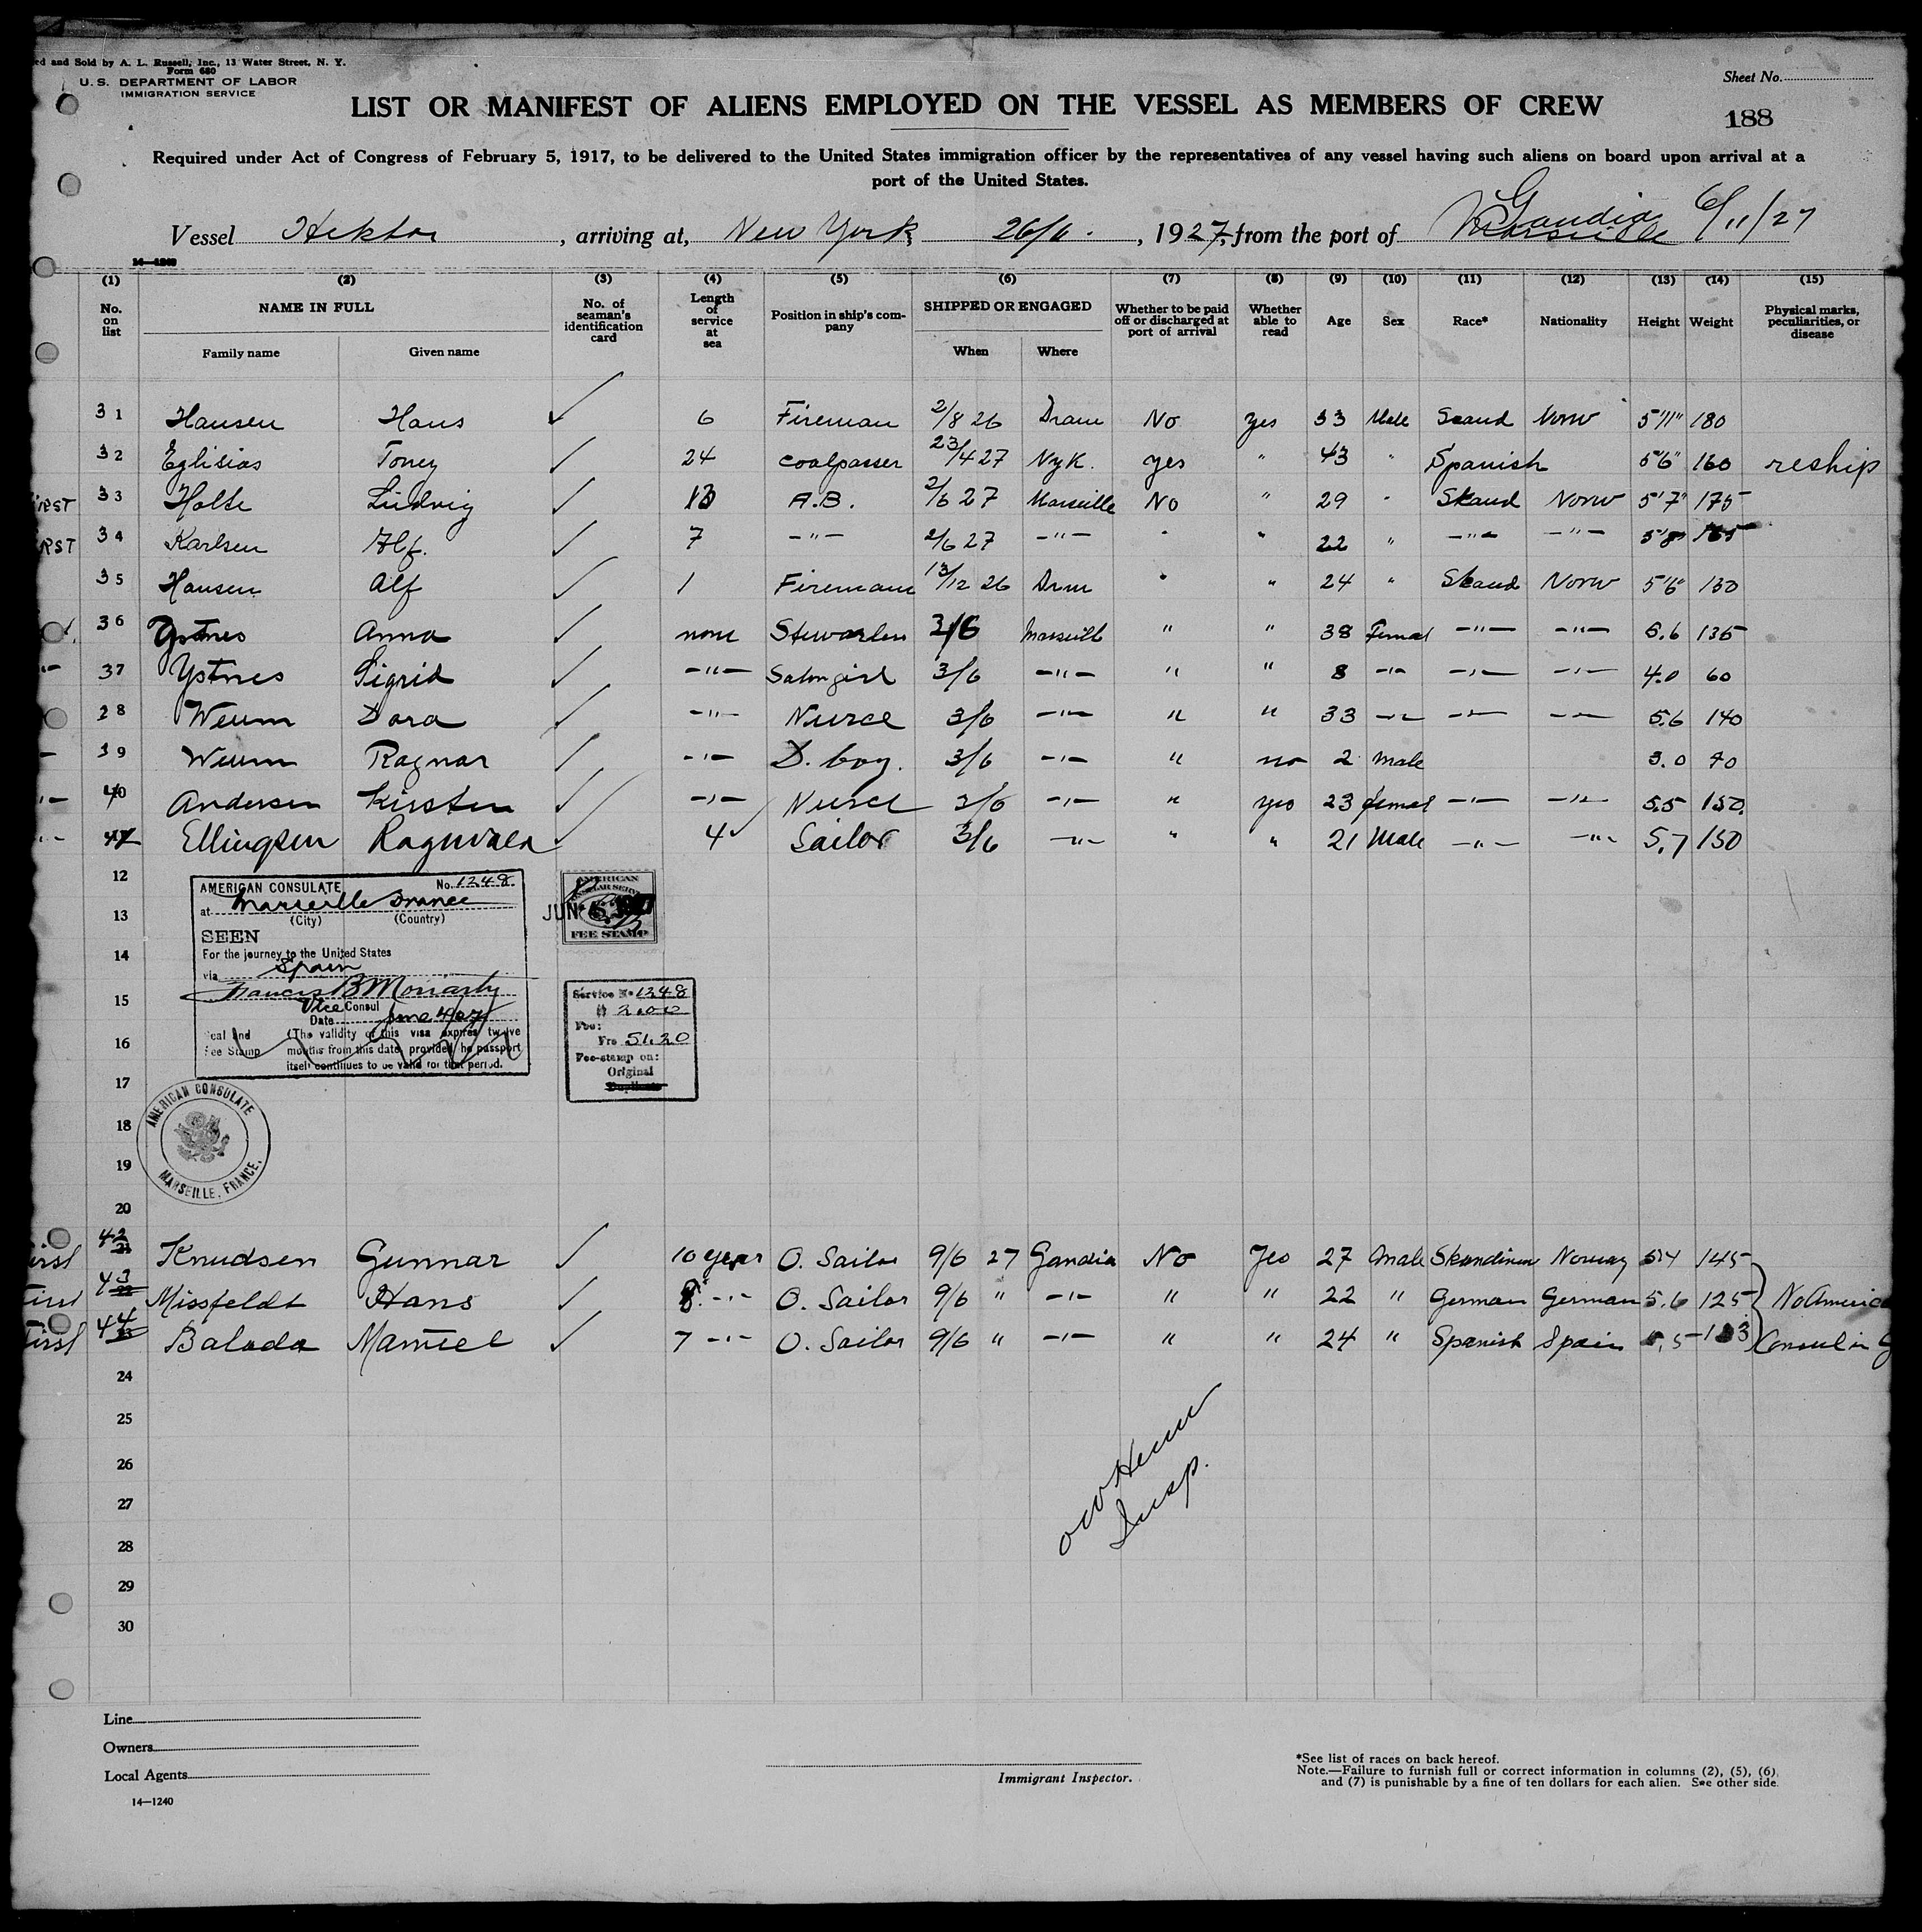 ed and Sold by A. L. Russell, Inc., 13 Water Street, N. Y.
Form 680
U. S. DEPARTMENT OF LABOR
IMMIGRATION SERVICE
Sheet No.
LIST OR MANIFEST OF ALIENS EMPLOYED ON THE VESSEL AS MEMBERS OF CREW
188
Required under Act of Congress of February 5, 1917, to be delivered to the United States immigration officer by the representatives of any vessel having such aliens on board upon arrival at a
port of the United States.
Vessel Hektor, arriving at, New York 26/6., 1927, from the port of Marseille Gandia 6/11/27
14—1240
(1) (2) (3) (4) (5) (6) (7) (8) (9) (10) (11) (12) (13) (14) (15)
No. on list NAME IN FULL Family name Given name No. of seaman's identification card Length of service at sea Position in ship's company SHIPPED OR ENGAGED When Where Whether to be paid off or discharged at port of arrival Whether able to read Age Sex Race* Nationality Height Weight Physical marks, peculiarities, or disease
31 Hansen Hans ✓ 6 Fireman 2/8 26 Dram No Yes 33 Male Scand Norw 5'11" 180
32 Eglisias Toney ✓ 24 coalpasser 23/4 27 NyK. Yes " 43 " Spanish 5'6" 160 reship
IRST 33 Holte Ludvig ✓ 13 A.B. 2/6 27 Marseille No " 29 " Skand Norw 5'7" 175
RST 34 Karlsen Alf. ✓ 7 —"— 2/6 27 —"— " " 22 " —"— —"— 5'8" 165
35 Hansen Alf ✓ 1 Firemann 13/12 26 Dram " " 24 " Skand Norw 5'6" 130
36 Ystnes Anna ✓ none Stewardess 3/6 Marseille " " 38 Femal —"— —"— 5.6 135
37 Ystnes Sigrid ✓ —"— Salongirl 3/6 —"— " " 8 —"— —"— —"— 4.0 60
28 Weum Dora ✓ —"— Nurce 3/6 —"— " " 33 —"— —"— —"— 5.6 140
39 Weum Ragnar ✓ —"— D. boy. 3/6 —"— " no 2 Male 3.0 40
40 Andersen Kirsten ✓ —"— Nurce 3/6 —"— " yes 23 femal —"— —"— 5.5 150.
41 Ellingsen Ragnvald ✓ 4 Sailor 3/6 —"— " " 21 Male —"— —"— 5.7 150
12
AMERICAN CONSULATE No. 1248
at Marseille France
(City) (Country)
SEEN
For the journey to the United States
via Spain
Francis B Moriarty
Vice Consul
Date June 4/27
Seal and Fee Stamp (The validity of this visa expires twelve months from this date, provided the passport itself continues to be valid for that period.
AMERICAN CONSULAR SERVICE
JUN
FEE STAMP
13
14
15
Service No 1248
$ 2.00
Fee:
Frs 51.20
Fee-stamp on:
Original
Duplicate
16
17
AMERICAN CONSULATE MARSEILLE, FRANCE.
18
19
20
irst 42 Knudsen Gunnar ✓ 10 year O. Sailor 9/6 27 Gandia No Yes 27 male Skandinav Norway 5.4 145
43 Missfeldt Hans ✓ 8 —"— O. Sailor 9/6 " —"— " " 22 " German German 5.6 125 No America
First 44 Balada Manuel ✓ 7 —"— O. Sailor 9/6 " —"— " " 24 " Spanish Spain 5.5 Consul in G
24
25
26
27
28
29
30
Insp.
Line
Owners
Local Agents
14—1240
Immigrant Inspector.
*See list of races on back hereof.
Note.—Failure to furnish full or correct information in columns (2), (5), (6),
and (7) is punishable by a fine of ten dollars for each alien. See other side.